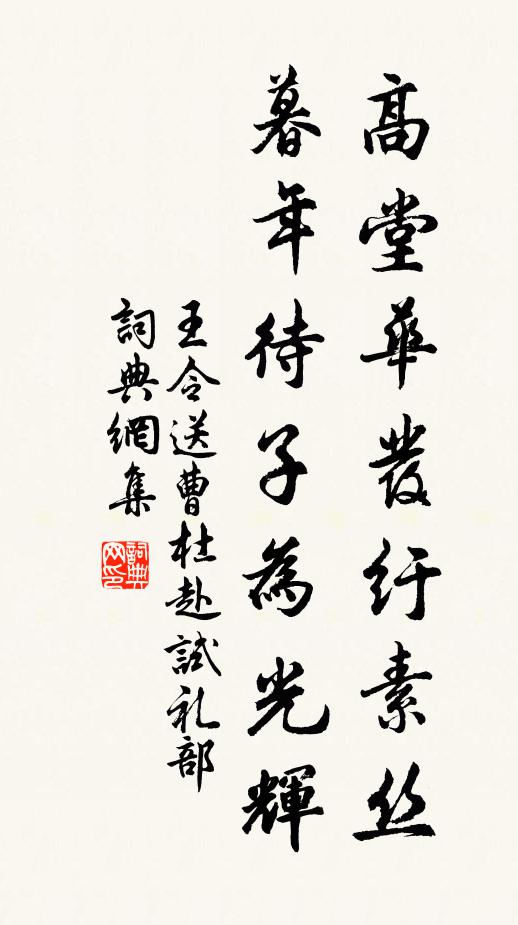 高堂華發紆素丝
暮年待子為光輝
王令送曹杜赴試礼部
詞典網集
詞典网印